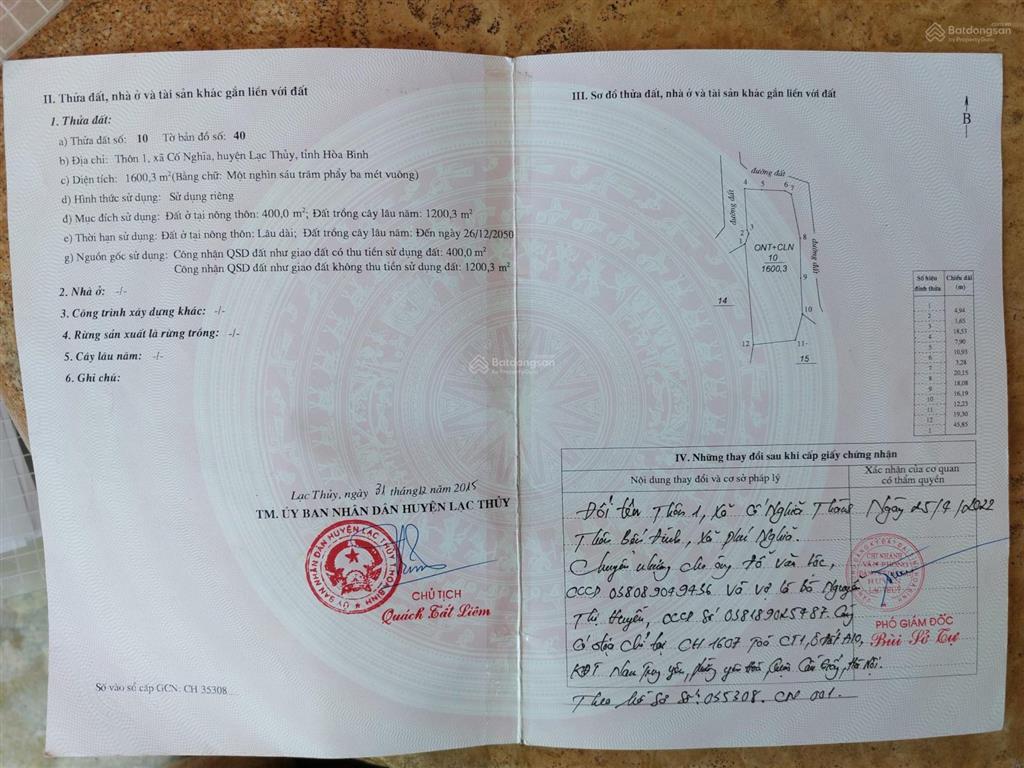 Batdongsan
by PropertyGuru
II. Thửa đất, nhà ở và tài sản khác gắn liền với đất
1. Thửa đất:
a) Thửa đất số: 10 Tờ bản đồ số: 40
b) Địa chỉ: Thôn 1, xã Cố Nghĩa, huyện Lạc Thủy, tỉnh Hòa Bình
c) Diện tích: 1600,3 m² (Bằng chữ: Một nghìn sáu trăm phẩy ba mét vuông)
d) Hình thức sử dụng: Sử dụng riêng
đ) Mục đích sử dụng: Đất ở tại nông thôn: 400,0 m²; Đất trồng cây lâu năm: 1200,3 m²
e) Thời hạn sử dụng: Đất ở tại nông thôn: Lâu dài; Đất trồng cây lâu năm: Đến ngày 26/12/2050
g) Nguồn gốc sử dụng: Công nhận QSD đất như giao đất có thu tiền sử dụng đất: 400,0 m²
Công nhận QSD đất như giao đất không thu tiền sử dụng đất: 1200,3 m²
2. Nhà ở: -/-
3. Công trình xây dựng khác: -/-
4. Rừng sản xuất là rừng trồng: -/-
5. Cây lâu năm: -/-
6. Ghi chú:
Lạc Thủy, ngày 31 tháng 12 năm 2015
TM. ỦY BAN NHÂN DÂN HUYỆN LẠC THỦY
CHỦ TỊCH
Quách Tất Liêm
Số vào sổ cấp GCN: CH 35308
III. Sơ đồ thửa đất, nhà ở và tài sản khác gắn liền với đất
B
đường đất
4 5 6 7
đường đất
2 3
1
8
đường đất
ONT+CLN
10
1600,3
9
14
10
12
11
15
Số hiệu đỉnh thửa
Chiều dài (m)
1
4,94
2
1,65
3
18,53
4
7,90
5
10,93
6
3,28
7
20,15
8
18,08
9
16,19
10
12,23
11
19,30
12
45,85
1
IV. Những thay đổi sau khi cấp giấy chứng nhận
Nội dung thay đổi và cơ sở pháp lý
Xác nhận của cơ quan có thẩm quyền
Đổi tên Thôn 1, Xã Cố Nghĩa Thành
Thôn Đình, Xã Phú Nghĩa.
Chuyển nhượng cho ông Đỗ Văn Lộc,
CCCD 038089049436 Và vợ là bà Nguyễn
Thị Huyền, CCCD Số 038189025787. Cùng
Có địa chỉ tại CH 1607 Toà CT1, Ô đất A10,
KĐT Nam Trung Yên, phường Yên Hoà Quận Cầu Giấy, Hà Nội.
Theo hồ sơ số: 035308. CN 001.
Ngày 25/4/2022
CHI NHÁNH
VĂN PHÒNG
LẠC THỦY
PHÓ GIÁM ĐỐC
Bùi Sỹ Tự
Batdongsan
by PropertyGuru